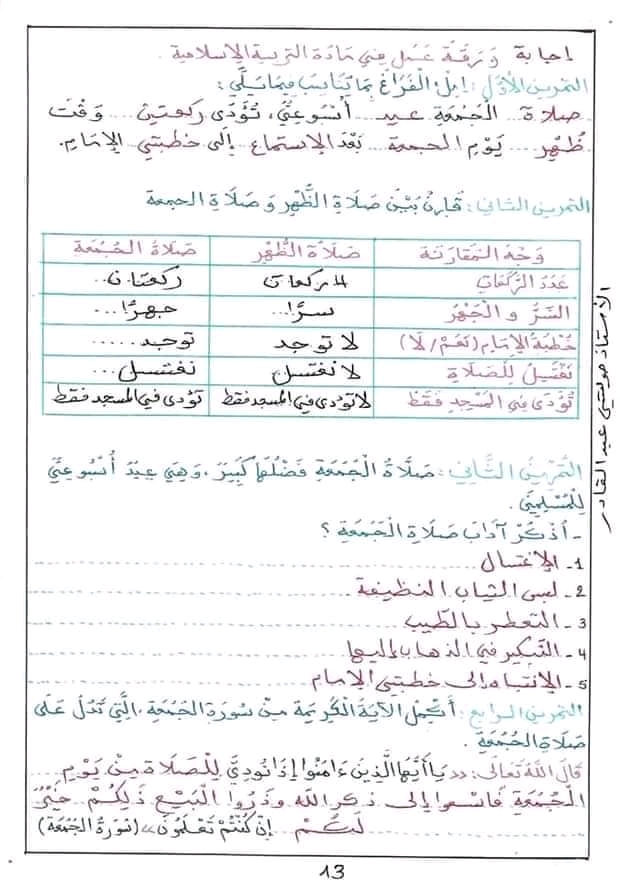 إجابة ورقة عمل في مادة التربية الإسلامية.
التمرين الأول: املأ الفراغ بما يناسب فيما يلي:
صلاة.. الجمعة عيد... أسبوعي، تؤدى ركعتين... وقت
ظهر... يوم الجمعة... بعد الاستماع إلى خطبتي الإمام.
التمرين الثاني: قارن بين صلاة الظهر وصلاة الجمعة
وجه المقارنة صلاة الظهر صلاة الجمعة
عدد الركعات 4 ركعات ركعتان..
السر والجهر سرا!... جهرا!...
خطبة الإمام (نعم/لا) لا توجد توجد.....
نغتسل للصلاة لا نغتسل نغتسل...
تؤدى في المسجد فقط لا تؤدى في المسجد فقط تؤدى في المسجد فقط
التمرين الثاني: صلاة الجمعة فضلها كبير، وهي عيد أسبوعي
للمسلمين.
- أذكر آداب صلاة الجمعة؟
1- الإغتسال
2- لبس الثياب النظيفة
3- التعطر بالطيب
4- التبكير في الذهاب إليها
5- الإنتباه إلى خطبتي الإمام
التمرين الرابع: أكمل الآية الكريمة من سورة الجمعة، التي تدل على
صلاة الجمعة.
قال الله تعالى: «يا أيها الذين ءامنوا إذا نودي للصلاة من يوم
الجمعة فاسعوا إلى ذكر الله وذروا البيع ذلكم خير
لكم... إن كنتم تعلمون» (سورة الجمعة)
الأستاذ عبد القادر
13